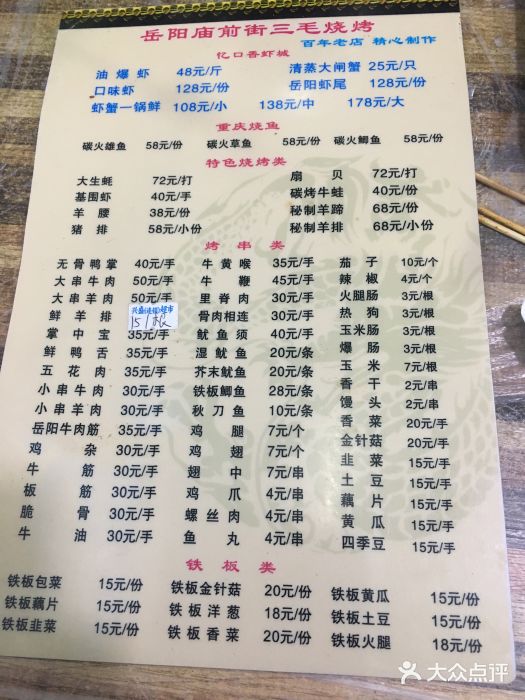 岳阳庙前街三毛烧烤
百年老店 精心制作
亿口香虾城
油爆虾 48元/斤 清蒸大闸蟹 25元/只
口味虾 128元/份 岳阳虾尾 128元/份
虾蟹一锅鲜 108元/小 138元/中 178元/大
重庆烧鱼
碳火雄鱼 58元/份 碳火草鱼 58元/份 碳火鲫鱼 58元/份
特色烧烤类
大生蚝 72元/打 扇贝 72元/打
基围虾 40元/手 碳烤牛蛙 40元/份
羊腰 38元/份 秘制羊蹄 68元/份
猪排 58元/小份 秘制羊排 68元/小份
烤串类
无骨鸭掌 40元/手 牛黄喉 35元/手 茄子 10元/个
大串牛肉 50元/手 牛鞭 45元/手 辣椒 4元/个
大串羊肉 50元/手 里脊肉 30元/手 火腿肠 3元/根
鲜羊排 15/根 骨肉相连 30元/手 热狗 3元/根
掌中宝 35元/手 鱿鱼须 40元/手 玉米肠 3元/根
鲜鸭舌 35元/手 湿鱿鱼 20元/条 爆肠 3元/根
五花肉 30元/手 芥末鱿鱼 20元/条 玉米 7元/根
小串牛肉 30元/手 铁板鲫鱼 28元/条 香干 2元/串
小串羊肉 30元/手 秋刀鱼 10元/条 馒头 2元/串
岳阳牛肉筋 35元/手 鸡腿 7元/个 香菜 20元/手
鸡杂 30元/手 鸡翅 7元/个 金针菇 20元/手
牛筋 30元/手 翅中 7元/串 韭菜 15元/手
板筋 30元/手 鸡爪 4元/串 土豆 15元/手
脆骨 30元/手 螺丝肉 4元/串 藕片 15元/手
牛油 30元/手 鱼丸 4元/串 黄瓜 15元/手
四季豆 15元/手
铁板类
铁板包菜 15元/份 铁板金针菇 20元/份 铁板黄瓜 15元/份
铁板藕片 15元/份 铁板洋葱 18元/份 铁板土豆 15元/份
铁板韭菜 15元/份 铁板香菜 20元/份 铁板火腿 18元/份
大众点评